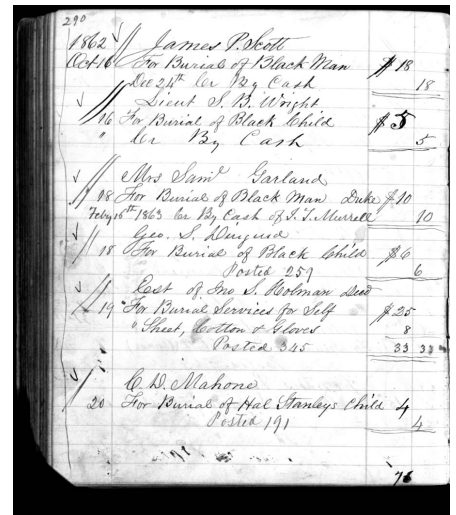 290
1862 James P. Scott
Oct 16 For Burial of Black Man $18
Dec 24th Cr By Cash 18
Lieut S. B. Wright
16 For Burial of Black Child $5
" Cr By Cash 5
Mrs Saml Garland
18 For Burial of Black Man Duke $10
Feby 16th 1863 Cr By Cash of J. T. Murrell 10
Geo. S. Diuguid
18 For Burial of Black Child $6
Posted 259 6
Est of Jno S. Holman Decd
19 " For Burial Services for Self $25
" Sheet, Cotton & Gloves 8
Posted 345 33 33
C. D. Mahone
20 For Burial of Hal Stanleys Child 4
Posted 191 4
76